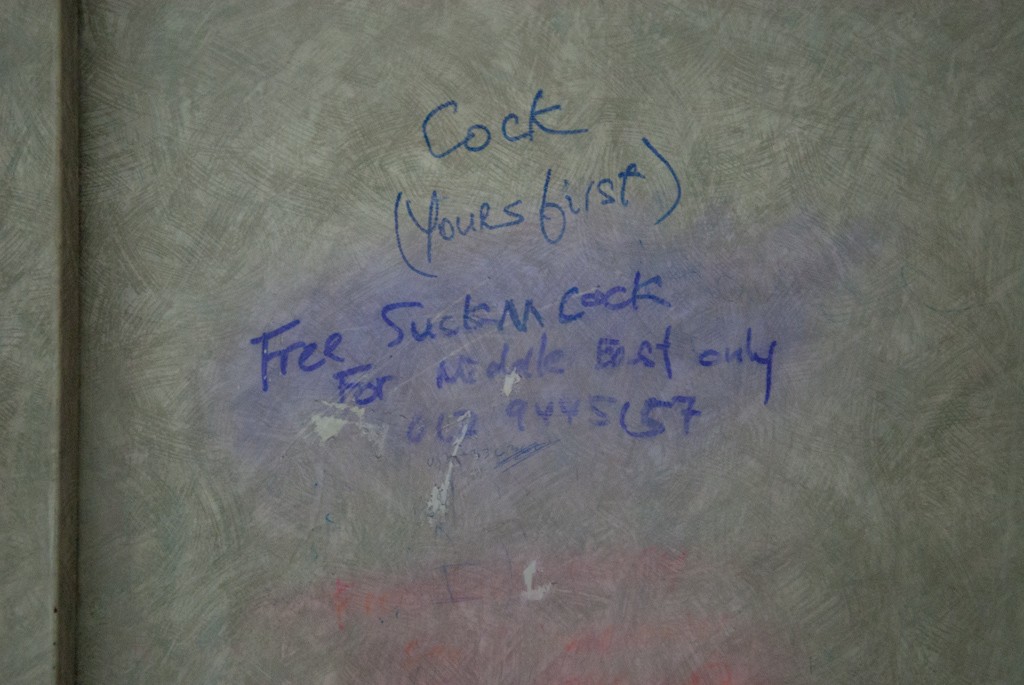 Cock
(Yours first)
Free Suck M Cock
For Middle East only